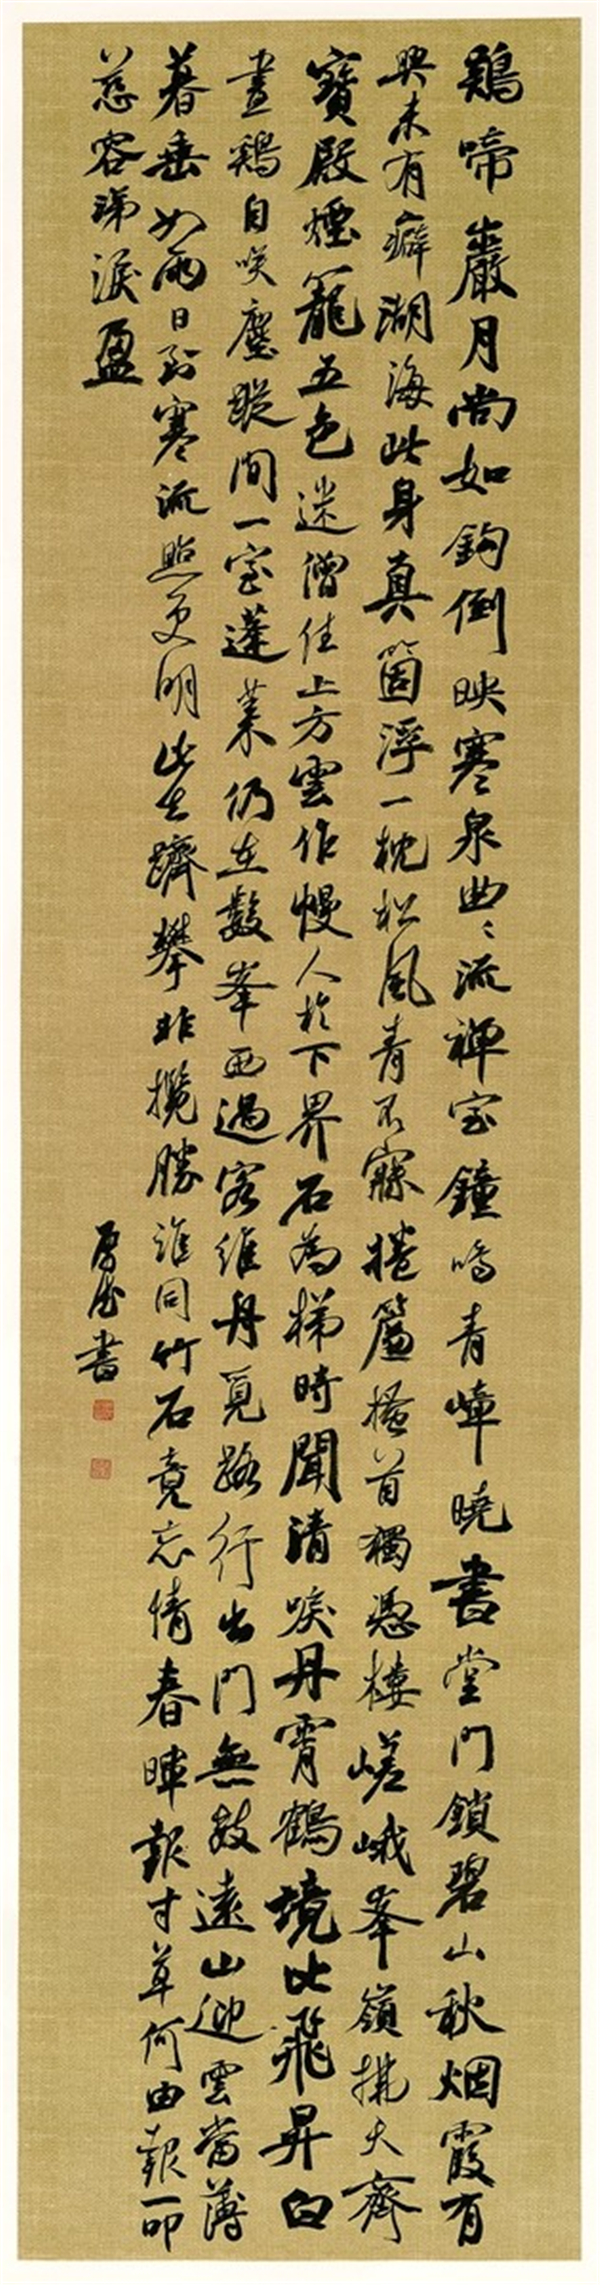 鷄啼巖月尚如鈎倒映寒泉曲〻流禪室鐘鳴青嶂曉書堂門鎖碧山秋烟霞有
興未有癖湖海此身真箇浮一枕松風青不寐捲簾搔首獨憑樓嵯峨峯嶺拂天齊
寶殿煙籠五色迷僧住上方雲作幔人於下界石為梯時聞清唳丹霄鶴境比飛昇白
晝鷄自笑塵蹤間一室蓬萊仍在數峯西過客維丹覓路行出門無數遠山迎雲當薄
暮垂如雨日到寒流照更明此生躋攀非攬勝誰同竹石竟忘情春暉報寸草何由報一叩
慈容涕淚盈
書